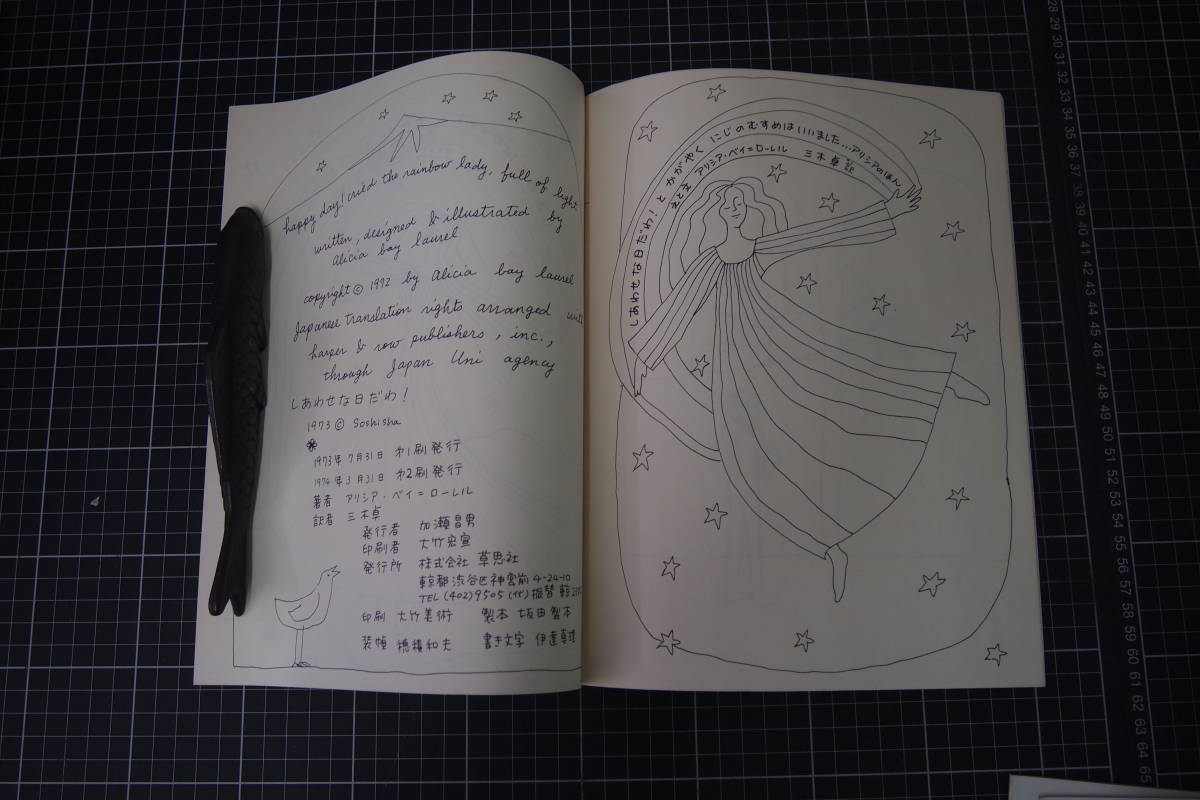 happy day! cried the rainbow lady, full of light.
written, designed & illustrated by
alicia bay laurel
copyright © 1972 by alicia bay laurel
Japanese translation rights arranged with
harper & row publishers, inc.,
through Japan Uni agency
しあわせな日だわ!
1973 © Soshisha
1973年7月31日 才1刷発行
1974年3月31日 才2刷発行
著者 アリシア・ベイ=ローレル
訳者 三木卓
発行者 加瀬昌男
印刷者 大竹宏宣
発行所 株式会社 草思社
東京都渋谷区神宮前4-24-10
TEL (402) 9505 (代) 振替 東京
印刷 大竹美術 製本 坂田製本
装幀 穂積和夫 書き文字 伊達
しあわせな日だわ!とかがやくにじのむすめはいいました…アリシアのほん
えと文 アリシア・ベイ=ローレル 三木卓訳
28
29
30
31
32
33
34
35
36
37
38
39
40
41
42
43
44
45
46
47
48
49
50
51
52
53
54
55
56
57
58
59
60
61
62
63
64
65